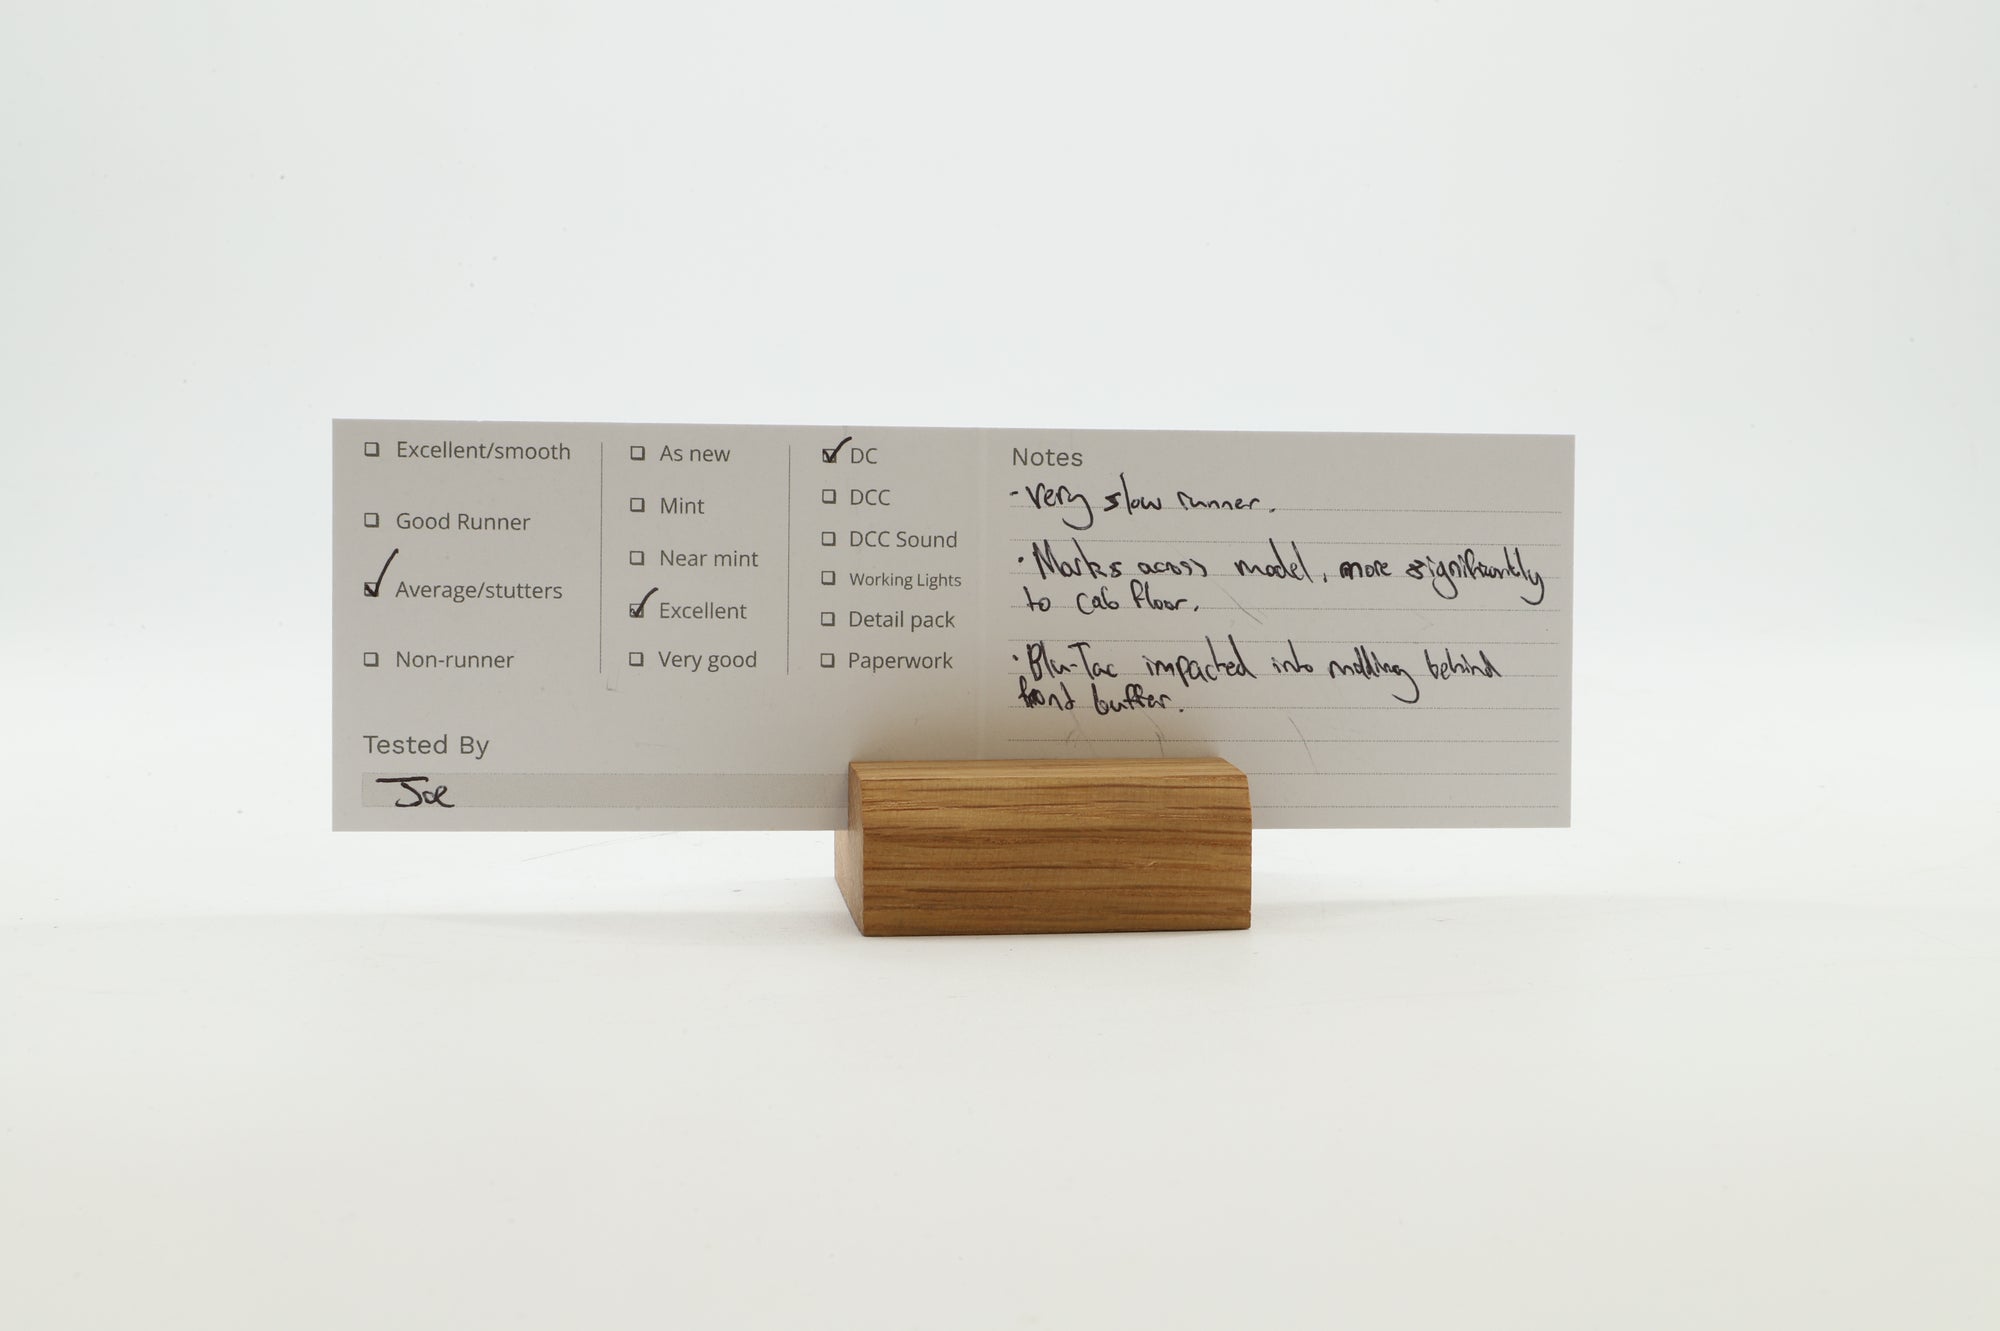 Excellent/smooth
Good Runner
Average/stutters
Non-runner
As new
Mint
Near mint
Excellent
Very good
DC
DCC
DCC Sound
Working Lights
Detail pack
Paperwork
Tested By
Joe
Notes
- Very slow runner.
· Marks across model, more significantly
to cab floor.
· Blu-Tac impacted into molding behind
front buffer.